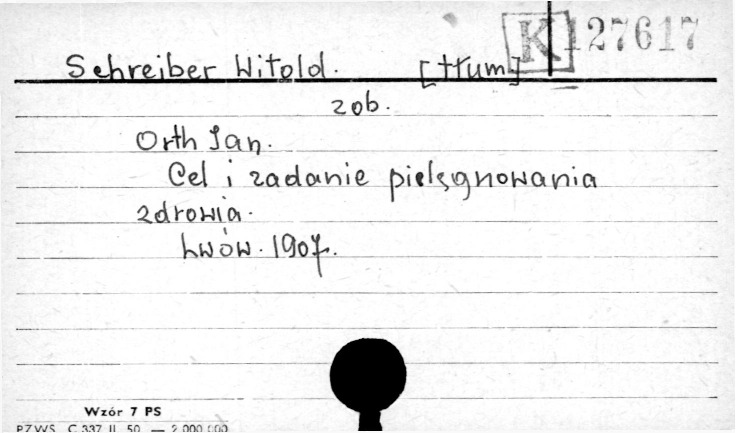 [K] 127617
Schreiber Witold. [tłum]
zob.
Orth Jan.
Cel i zadanie pielęgnowania
zdrowia.
Lwów. 1907.
Wzór 7 PS
PZWS. C 337 II 50 — 2.000.000